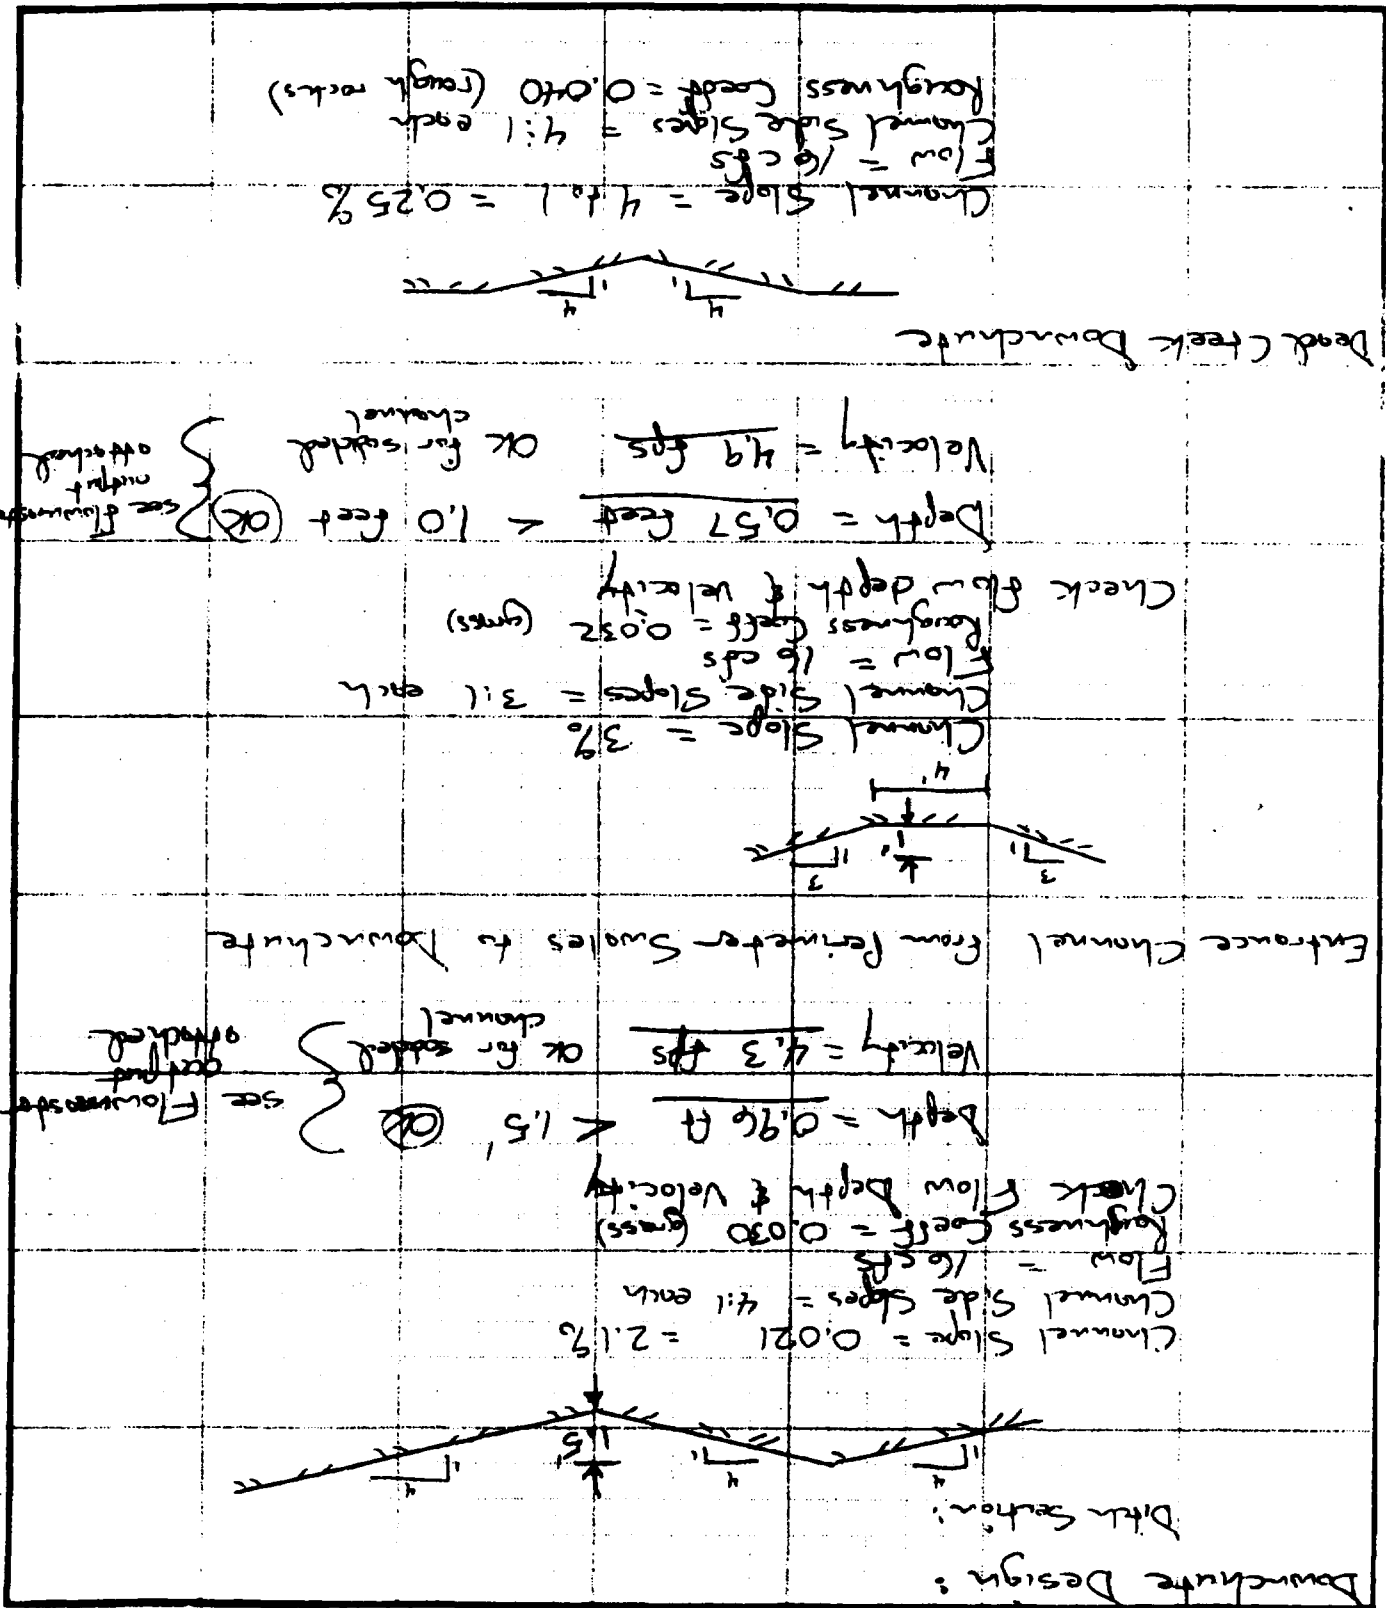 Downchute Design:
Ditch Section:
4 1 4 1 1.5' 1 4
Channel Slope = 0.021 = 2.1%
Channel Side Slopes = 4:1 each
Flow = 16 cfs
Roughness Coeff = 0.030 (grass)
Check Flow Depth & Velocity
Depth = 0.96 ft < 1.5' OK
Velocity = 4.3 fps ok for sodded channel
see Flowmaster
output
attached
Entrance Channel from Perimeter Swales to Downchute
3 1 1' 1 3
4'
Channel Slope = 3%
Channel Side Slopes = 3:1 each
Flow = 16 cfs
Roughness Coeff = 0.032 (grass)
Check flow depth & velocity
Depth = 0.57 feet < 1.0 feet OK
Velocity = 4.9 fps OK for sodded channel
see flowmaster
output
attached
Dead Creek Downchute
4 1 1 4
Channel Slope = 4 to 1 = 0.25%
Flow = 16 cfs
Channel Side Slopes = 4:1 each
Roughness Coeff = 0.040 (rough rocks)